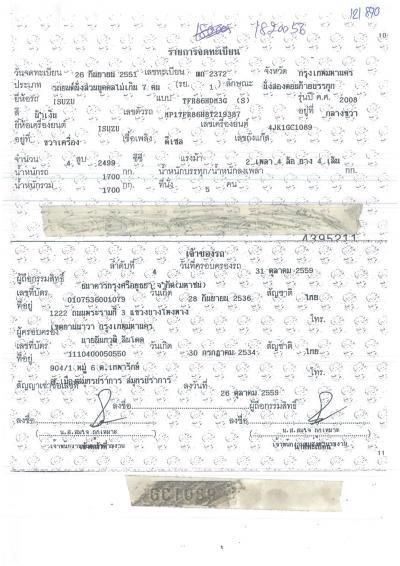 121 890
1820056
10
รายการจดทะเบียน
วันจดทะเบียน 26 กันยายน 2551 เลขทะเบียน 2372 จังหวัด กรุงเทพมหานคร
ประเภท รถยนต์นั่งส่วนบุคคลไม่เกิน 7 คน (รย. 1) ลักษณะ นั่งสองตอนท้ายบรรทุก
ยี่ห้อรถ ISUZU แบบ TFR86HDM3G (S) รุ่นปี ค.ศ. 2008
สี ฟ้า,เงิน เลขตัวรถ MP1TFR86H8T219387 อยู่ที่ กลางขวา
ยี่ห้อเครื่องยนต์ ISUZU เลขเครื่องยนต์ 4JK1GC1089
อยู่ที่ ขวาเครื่อง เชื้อเพลิง ดีเซล เลขถังแก๊ส
จำนวน 4 สูบ 2499 ซีซี แรงม้า 2 เพลา 4 ล้อ ยาง 4 เส้น
น้ำหนักรถ 1700 กก. น้ำหนักบรรทุก/น้ำหนักลงเพลา กก.
น้ำหนักรวม 1700 กก. ที่นั่ง 5 คน
4395211
เจ้าของรถ
ลำดับที่ 4 วันที่ครอบครองรถ 31 ตุลาคม 2559
ผู้ถือกรรมสิทธิ์ ธนาคารกรุงศรีอยุธยา จำกัด(มหาชน)
เลขที่บัตร 0107536001079 วันเกิด 28 กันยายน 2536 สัญชาติ ไทย
ที่อยู่ 1222 ถนนพระรามที่ 3 แขวงบางโพงพาง
เขตยานนาวา กรุงเทพมหานคร โทร.
ผู้ครอบครอง
เลขที่บัตร 1110400050550 วันเกิด 30 กรกฎาคม 2534 สัญชาติ ไทย
ที่อยู่ 904/1 หมู่ 6 ต.เทพารักษ์
อ.เมืองสมุทรปราการ สมุทรปราการ โทร.
สัญญาเช่าซื้อเลขที่ ลงวันที่ 26 ตุลาคม 2559 ผู้ถือกรรมสิทธิ์
ลงชื่อ ลงชื่อ
นายทะเบียน
11
GC1089